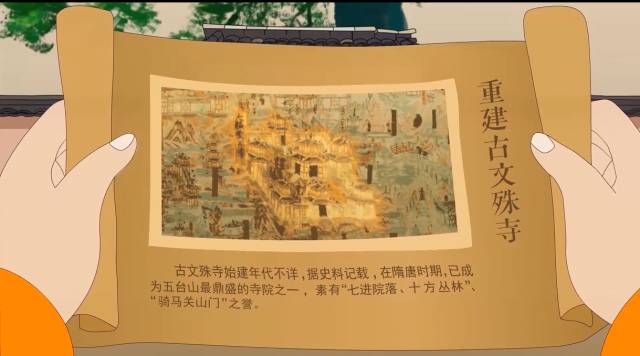 重建古文殊寺
古文殊寺始建年代不详，据史料记载，在隋唐时期，已成
为五台山最鼎盛的寺院之一，素有“七进院落、十方丛林”、
“骑马关山门”之誉。